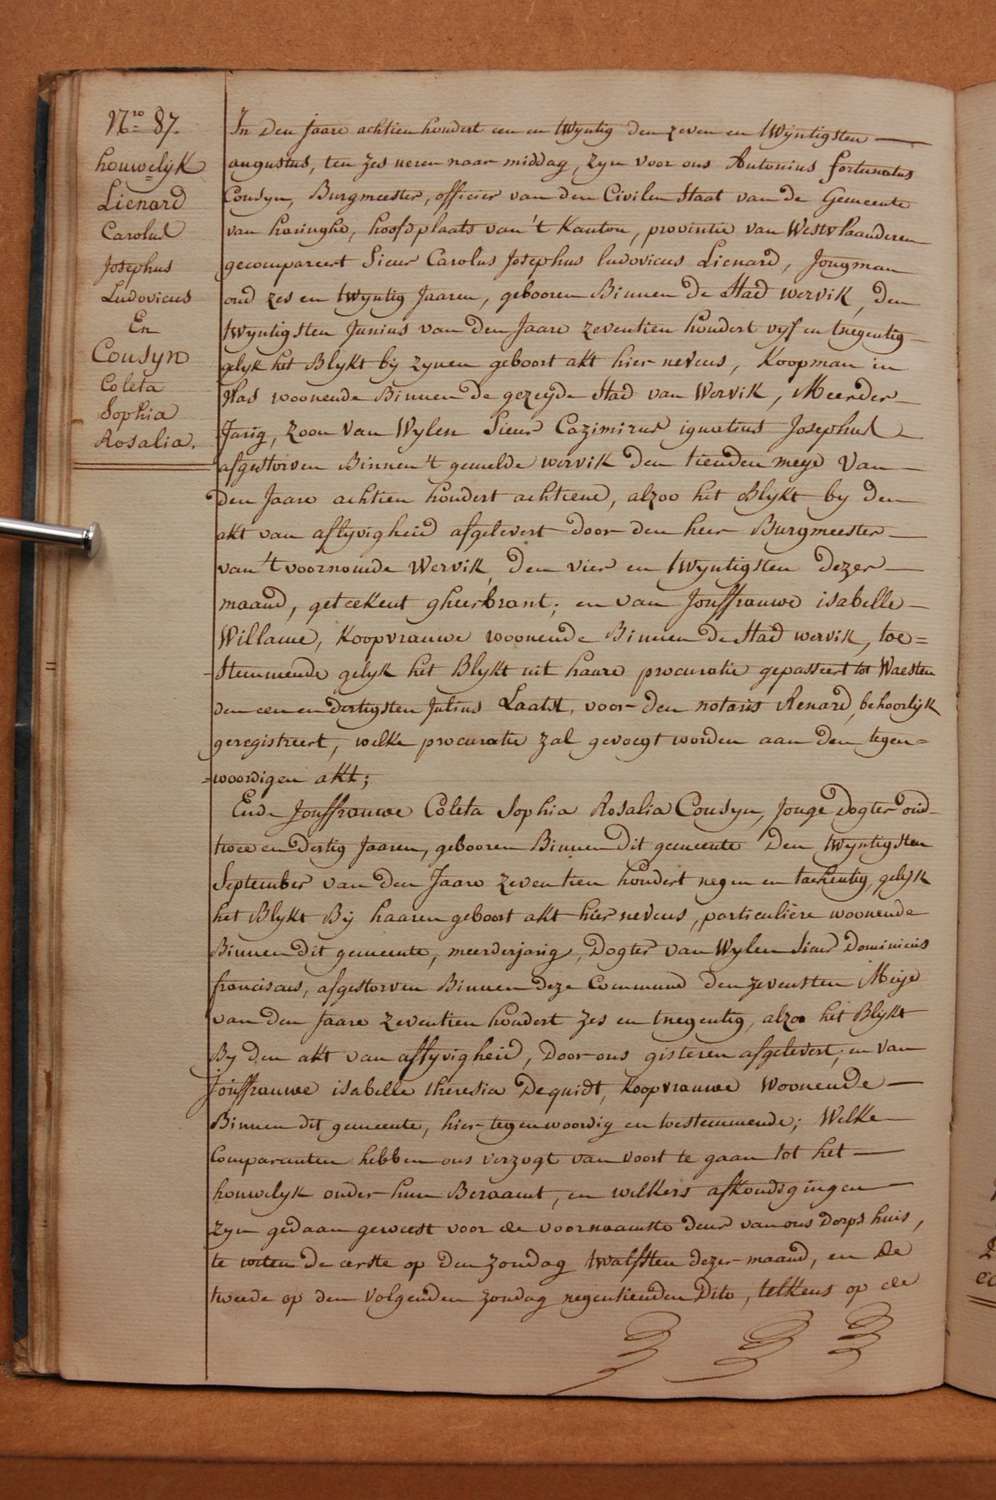 Nro 87.
houwelijk
Lienard
Carolus
Josephus
Ludovicus
En
Cousyn
Coleta
Sophia
Rosalia.
In den Jaare achtien hondert een en twyntig den zeven en twyntigsten
augustus, ten zes ueren naar middag, zyn voor ons Antonius fortunatus
Cousyn, Burgmeester, officier van den Civilen Staat van de Gemeente
van haringhe, hoofdplaats van 't Kanton, provintie van Westvlaanderen
gecompareert Sieur Carolus Josephus ludovicus Lienard, Jongman
oud zes en twyntig Jaaren, gebooren Binnen de Stad wervik, den
twyntigsten Junius van den Jaare zeventien hondert vyf en tnegentig
gelyk het Blykt bij zynen geboort akt hier nevens, Koopman in
Vlas woonende Binnen de gezeijde Stad van Wervik, Meerder
Jarig, zoon van Wylen Sieur Cazimirus ignatius Josephus
afgestorven Binnen 't gemelde wervik den tienden meye van
den Jaare achtien hondert achtiene, alzoo het Blykt by den
akt van aflyvigheid afgelevert door den heer Burgmeester
van 't voornomde Wervik, den vier en twyntigsten dezer
maand, geteekent gheerbrant; en van Jouffrauwe isabelle
Willame, Koopvrauwe woonende Binnen de Stad wervik, toe=
-Stemmende gelyk het Blykt uit haare procuratie gepasseert tot Waesten
den een en dertigsten Julius Laatst, voor den notaris Renard, behoorlijk
geregistreert, welke procuratie zal gevoegt worden aan den tegen=
=woordigen akt;
Ende Jouffrauwe Coleta Sophia Rosalia Cousyn, Jonge Dogter oud
twee en dertig Jaaren, gebooren Binnen dit gemeente den twyntigsten
September van den Jaare zeventien hondert negen en tachentig, gelijk
het Blykt Bij haaren geboort akt hier nevens, particulière woonende
Binnen dit gemeente, meerderjarig, Dogter van Wylen Sieur Dominicus
franciscus, afgestorven Binnen deze Commune den zevensten Meije
van den Jaare zeventien hondert zes en tnegentig, alzoo het Blykt
By den akt van aflyvigheid, Door ons gisteren afgelevert, en van
Jouffrauwe isabelle theresia Dequidt, Koopvrauwe Woonende
Binnen dit gemeente, hier tegenwoordig en toestemmende; Welke
Comparanten hebben ons verzogt van voort te gaan tot het
houwelyk onder hun Beraamt, en wilkers afkondigingen
zyn gedaan geweest voor de voornaamste deur van ons dorps huis,
te weten de eerste op den zondag twalfsten dezer maand, en de
tweede op den volgenden zondag negentienden Dito, telkens op de